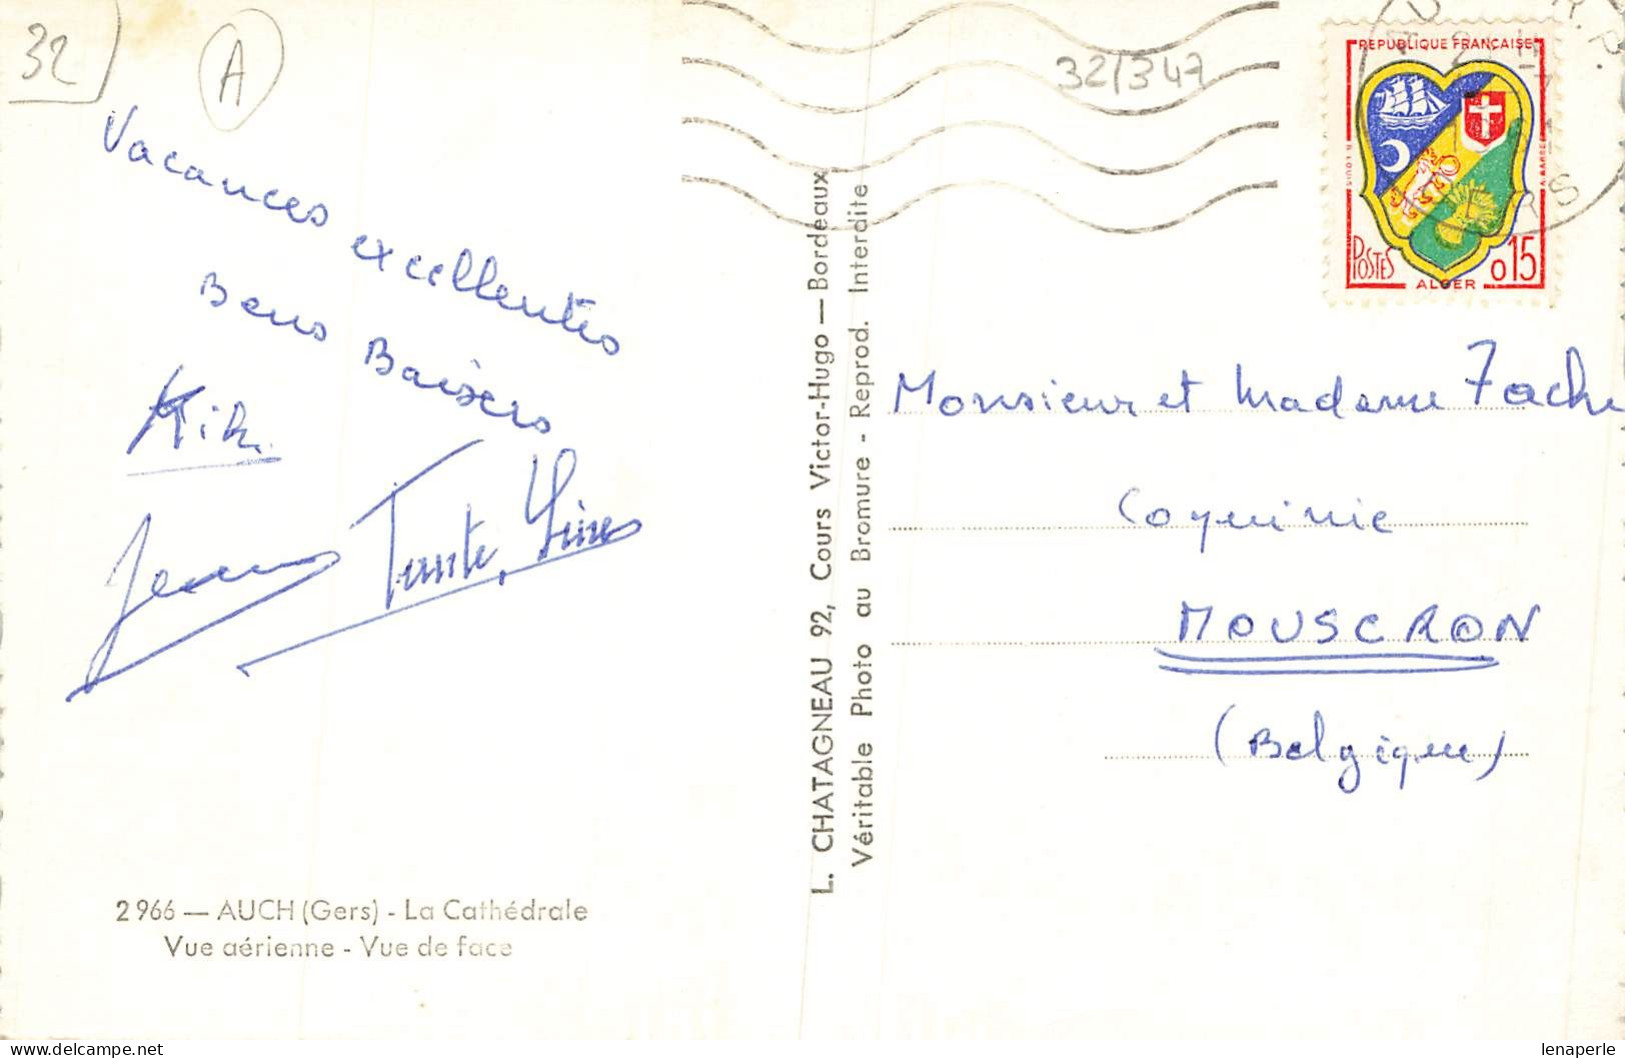 32
A
32/347
Vacances excellentes
Bons Baisers
Kiki
Tante
2966 — AUCH (Gers) - La Cathédrale
Vue aérienne - Vue de face
L. CHATAGNEAU 92, Cours Victor-Hugo — Bordeaux
Véritable Photo au Bromure - Reprod. Interdite
REPUBLIQUE FRANÇAISE
POSTES
0,15
ALGER
Monsieur et Madame
Coquinie
MOUSCRON
(Belgique)
lenaperle